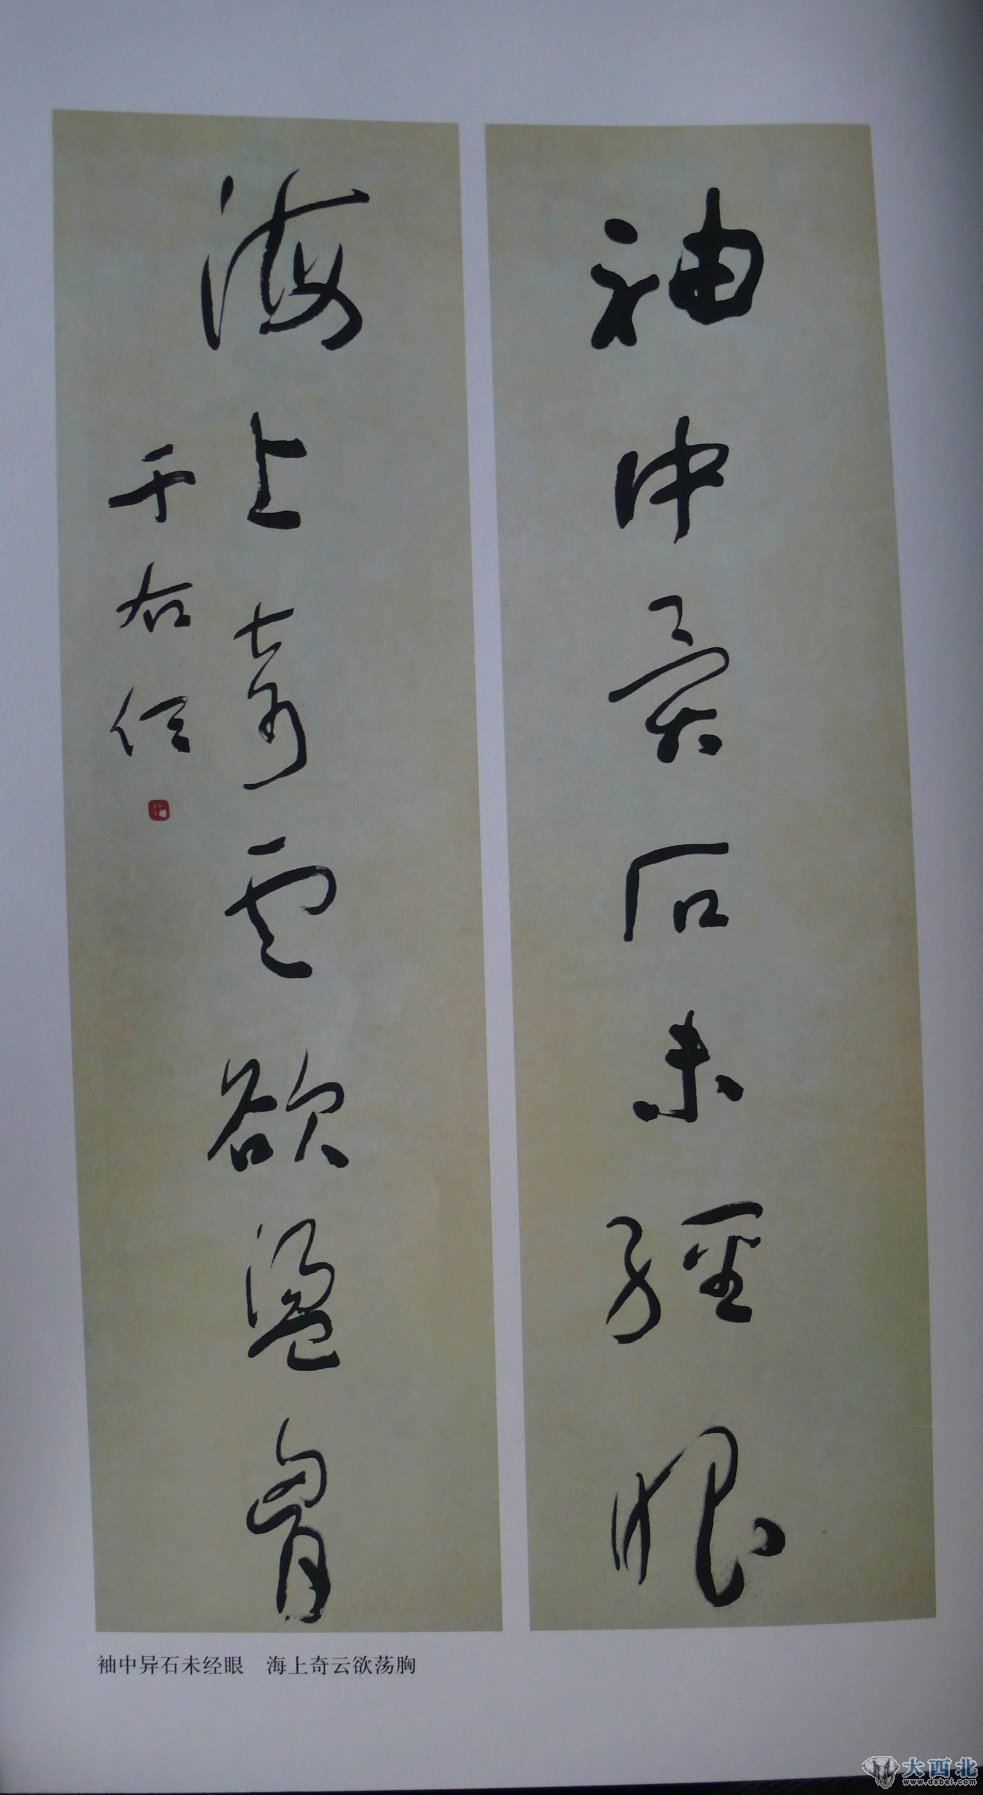 袖中異石未經眼
海上奇雲欲盪胷
于右任
袖中异石未经眼 海上奇云欲荡胸
大西北
www.dxbei.com